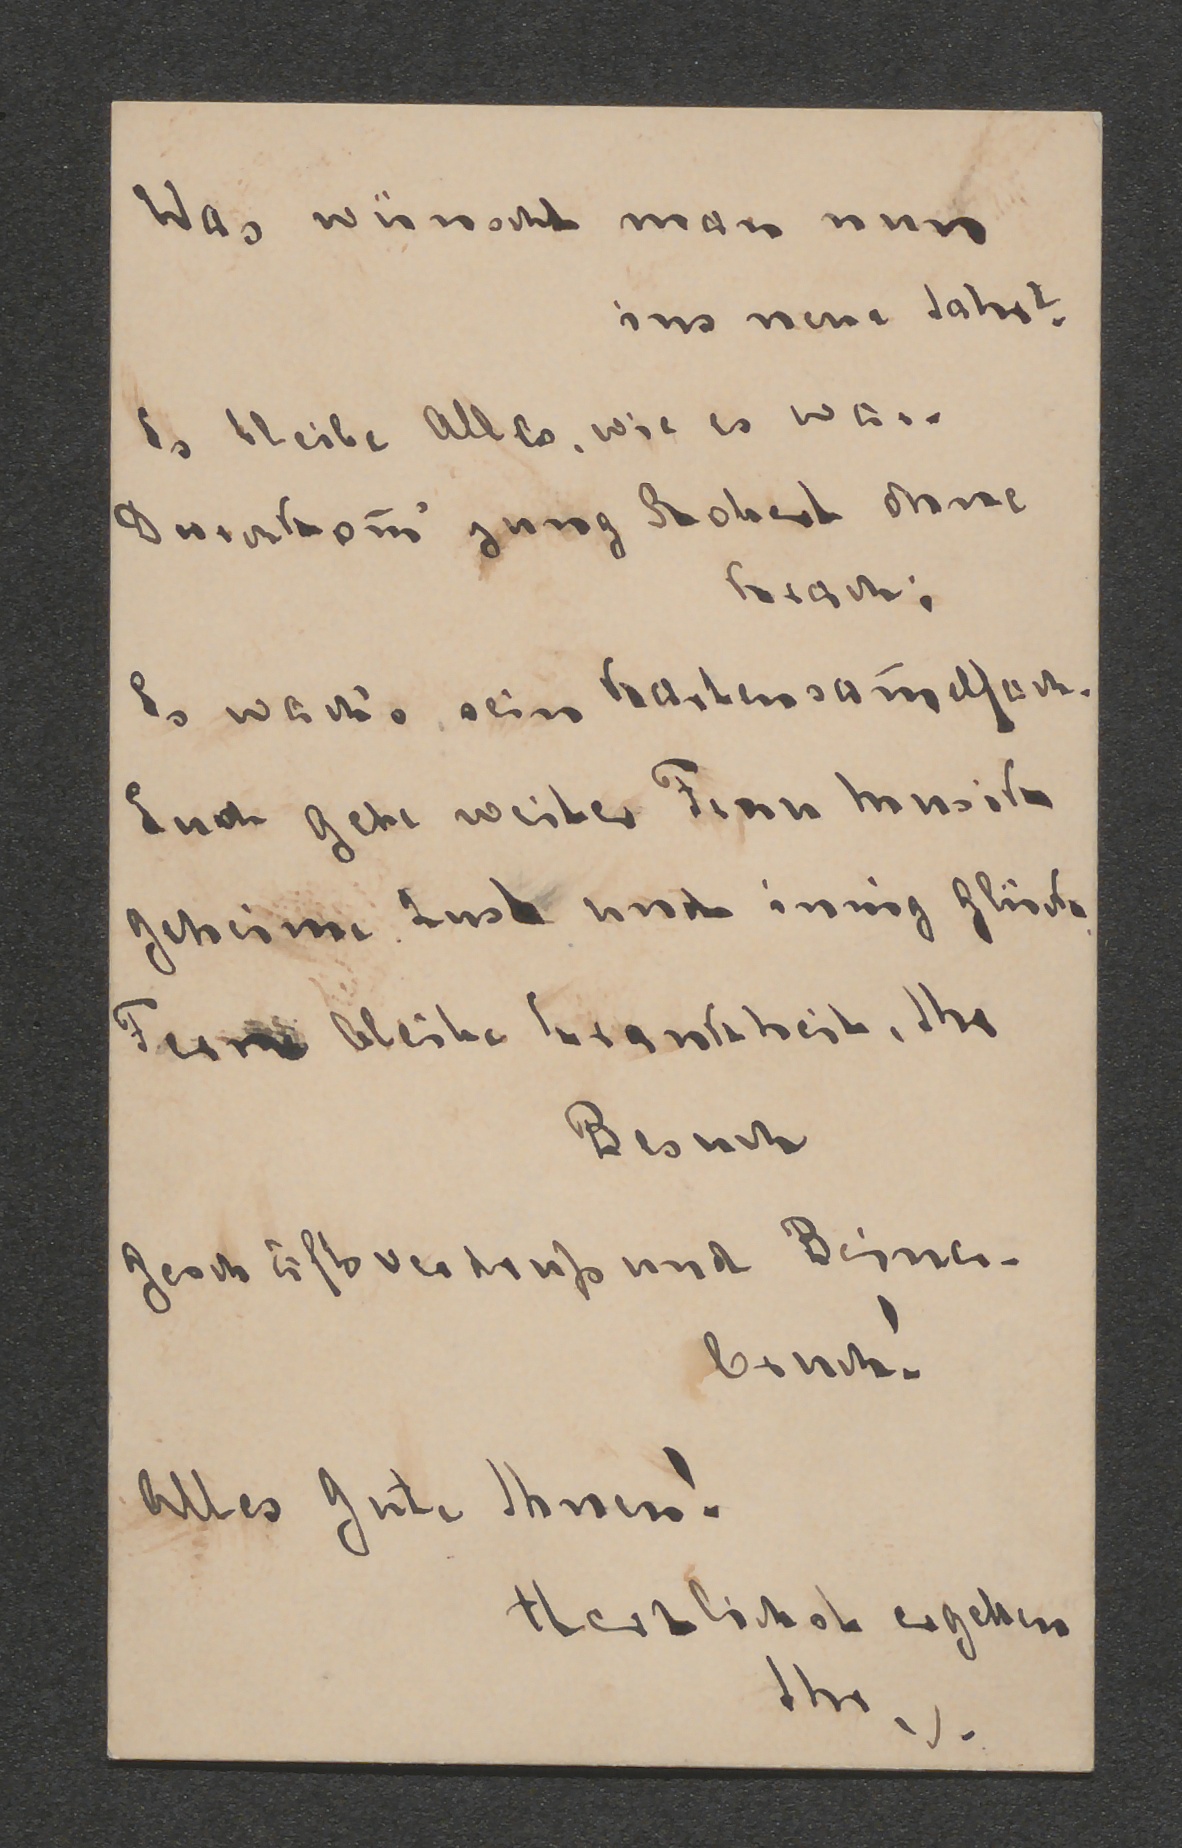 Was wünscht man nun
ins neue Jahr?
Es bleibe Alles, wie es war.
Durchkom̅' jung Robert ohne
Krach;
Es wachs' sein Kartensam̅elfach.
Euch gebe weiter Frau Musik
geheime Lust und innig Glück.
Fern bleibe Krankheit, Ihr
Besuch
Geschäftsverdruß und Beiner-
bruch!
Alles Gute Ihnen!
Herzlichst ergeben
Ihr